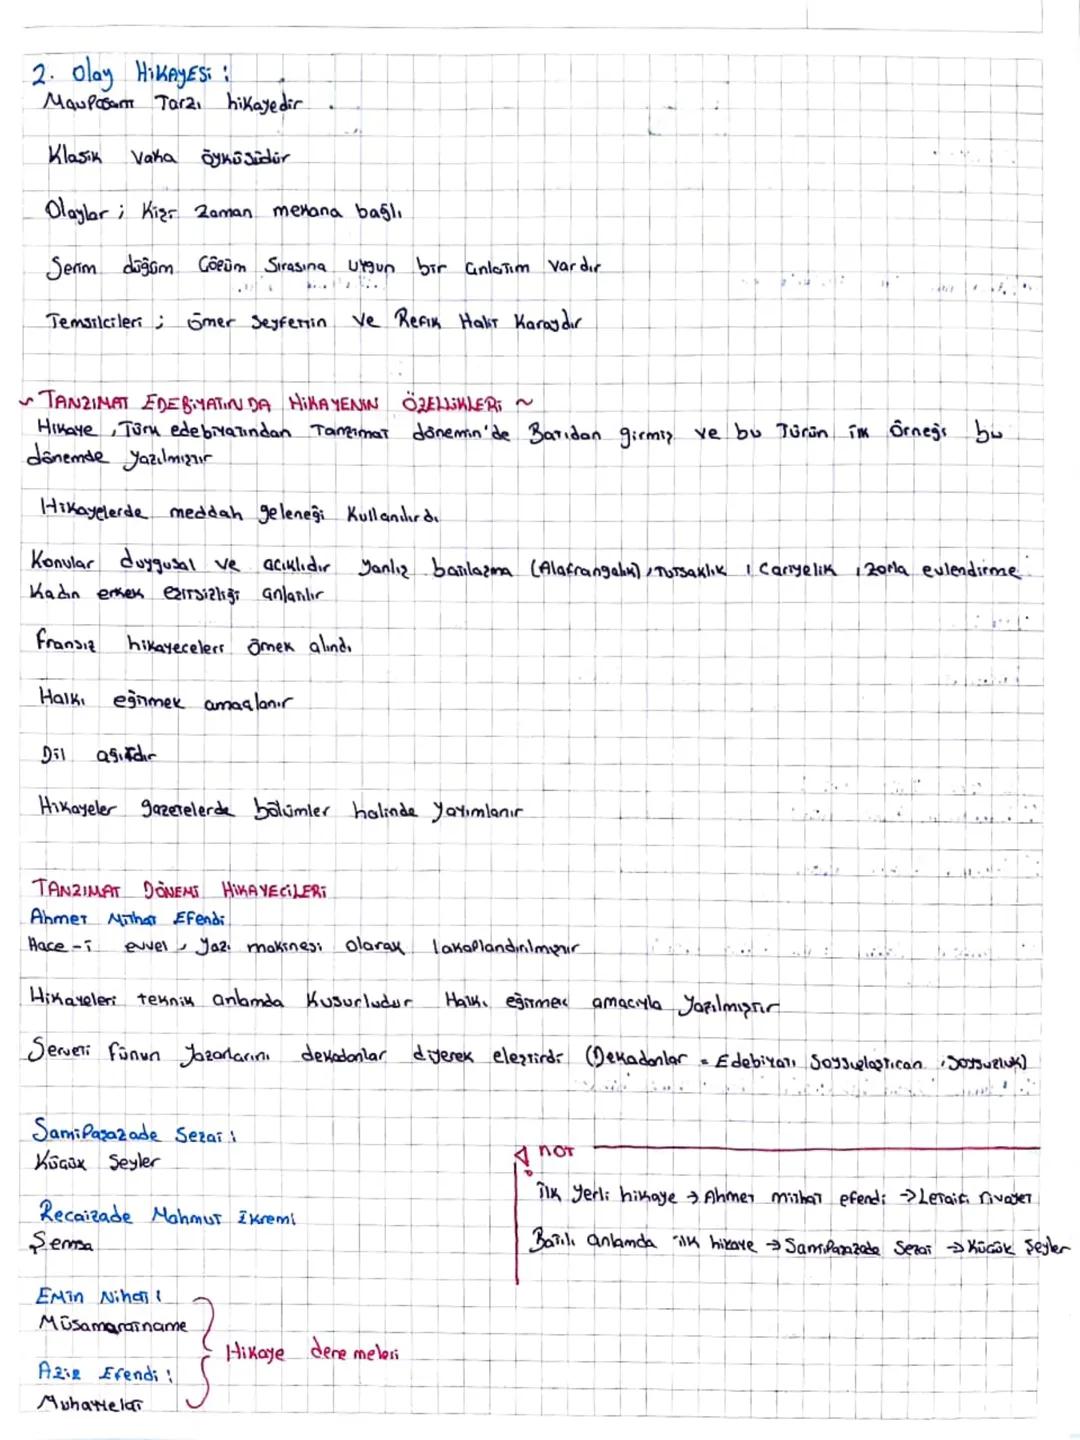 2. Olay HİKAYESİ :
Maupasam Tarzı hikayedir
Klasik vaka öyküsüdür
Olaylar ; Kişi zaman mekana bağlı
Serim düğüm Çözüm Sırasına uygun bir anlatım vardır
Temsilcileri ; Ömer Seyfettin ve Refik Halit Karaydır
~ TANZİMAT EDEBİYATINDA HİKAYENİN ÖZELLİKLERİ ~
Hikaye , Türk edebiyatından Tanzimat dönemin'de Batıdan girmiş ve bu Türün ilk Örneği bu
dönemde yazılmıştır
Hikayelerde meddah geleneği Kullanılırdı
Konular duygusal ve acıklıdır yanlız batılaşma (Alafrangalık) , Tutsaklık , Cariyelik , zorla evlendirme
Kadın erkek eşitsizliği anlatılır
fransız hikayeceleri örnek alındı
Halkı eğitmek amaçlanır
Dil ağırdır
Hikayeler gazetelerde bölümler halinde yayımlanır
TANZIMAT DÖNEMİ HİKAYECİLERİ
Ahmet Mithat Efendi
Hace-i evvel , Yazı makinesi olarak lakaplandırılmıştır
Hikayeleri teknik anlamda Kusurludur Halkı eğitmek amacıyla Yazılmıştır
Serveti fünun Yazarlarını dekadanlar diyerek eleştirdi (Dekadanlar = Edebiyatı Soysuzlaştıran , Soysuzluk)
SamiPaşazade Sezai :
Küçük Şeyler
NOT
İlk yerli hikaye → Ahmet mithat efendi → Letaifi rivayet
Recaizade Mahmut Ekremi
Şemsa
Batılı anlamda ilk hikaye → SamiPaşazade Sezai → Küçük Şeyler
Emin Nihat :
Müsamaratname
Hikaye denemeleri
Aziz Efendi :
Muhayyelat